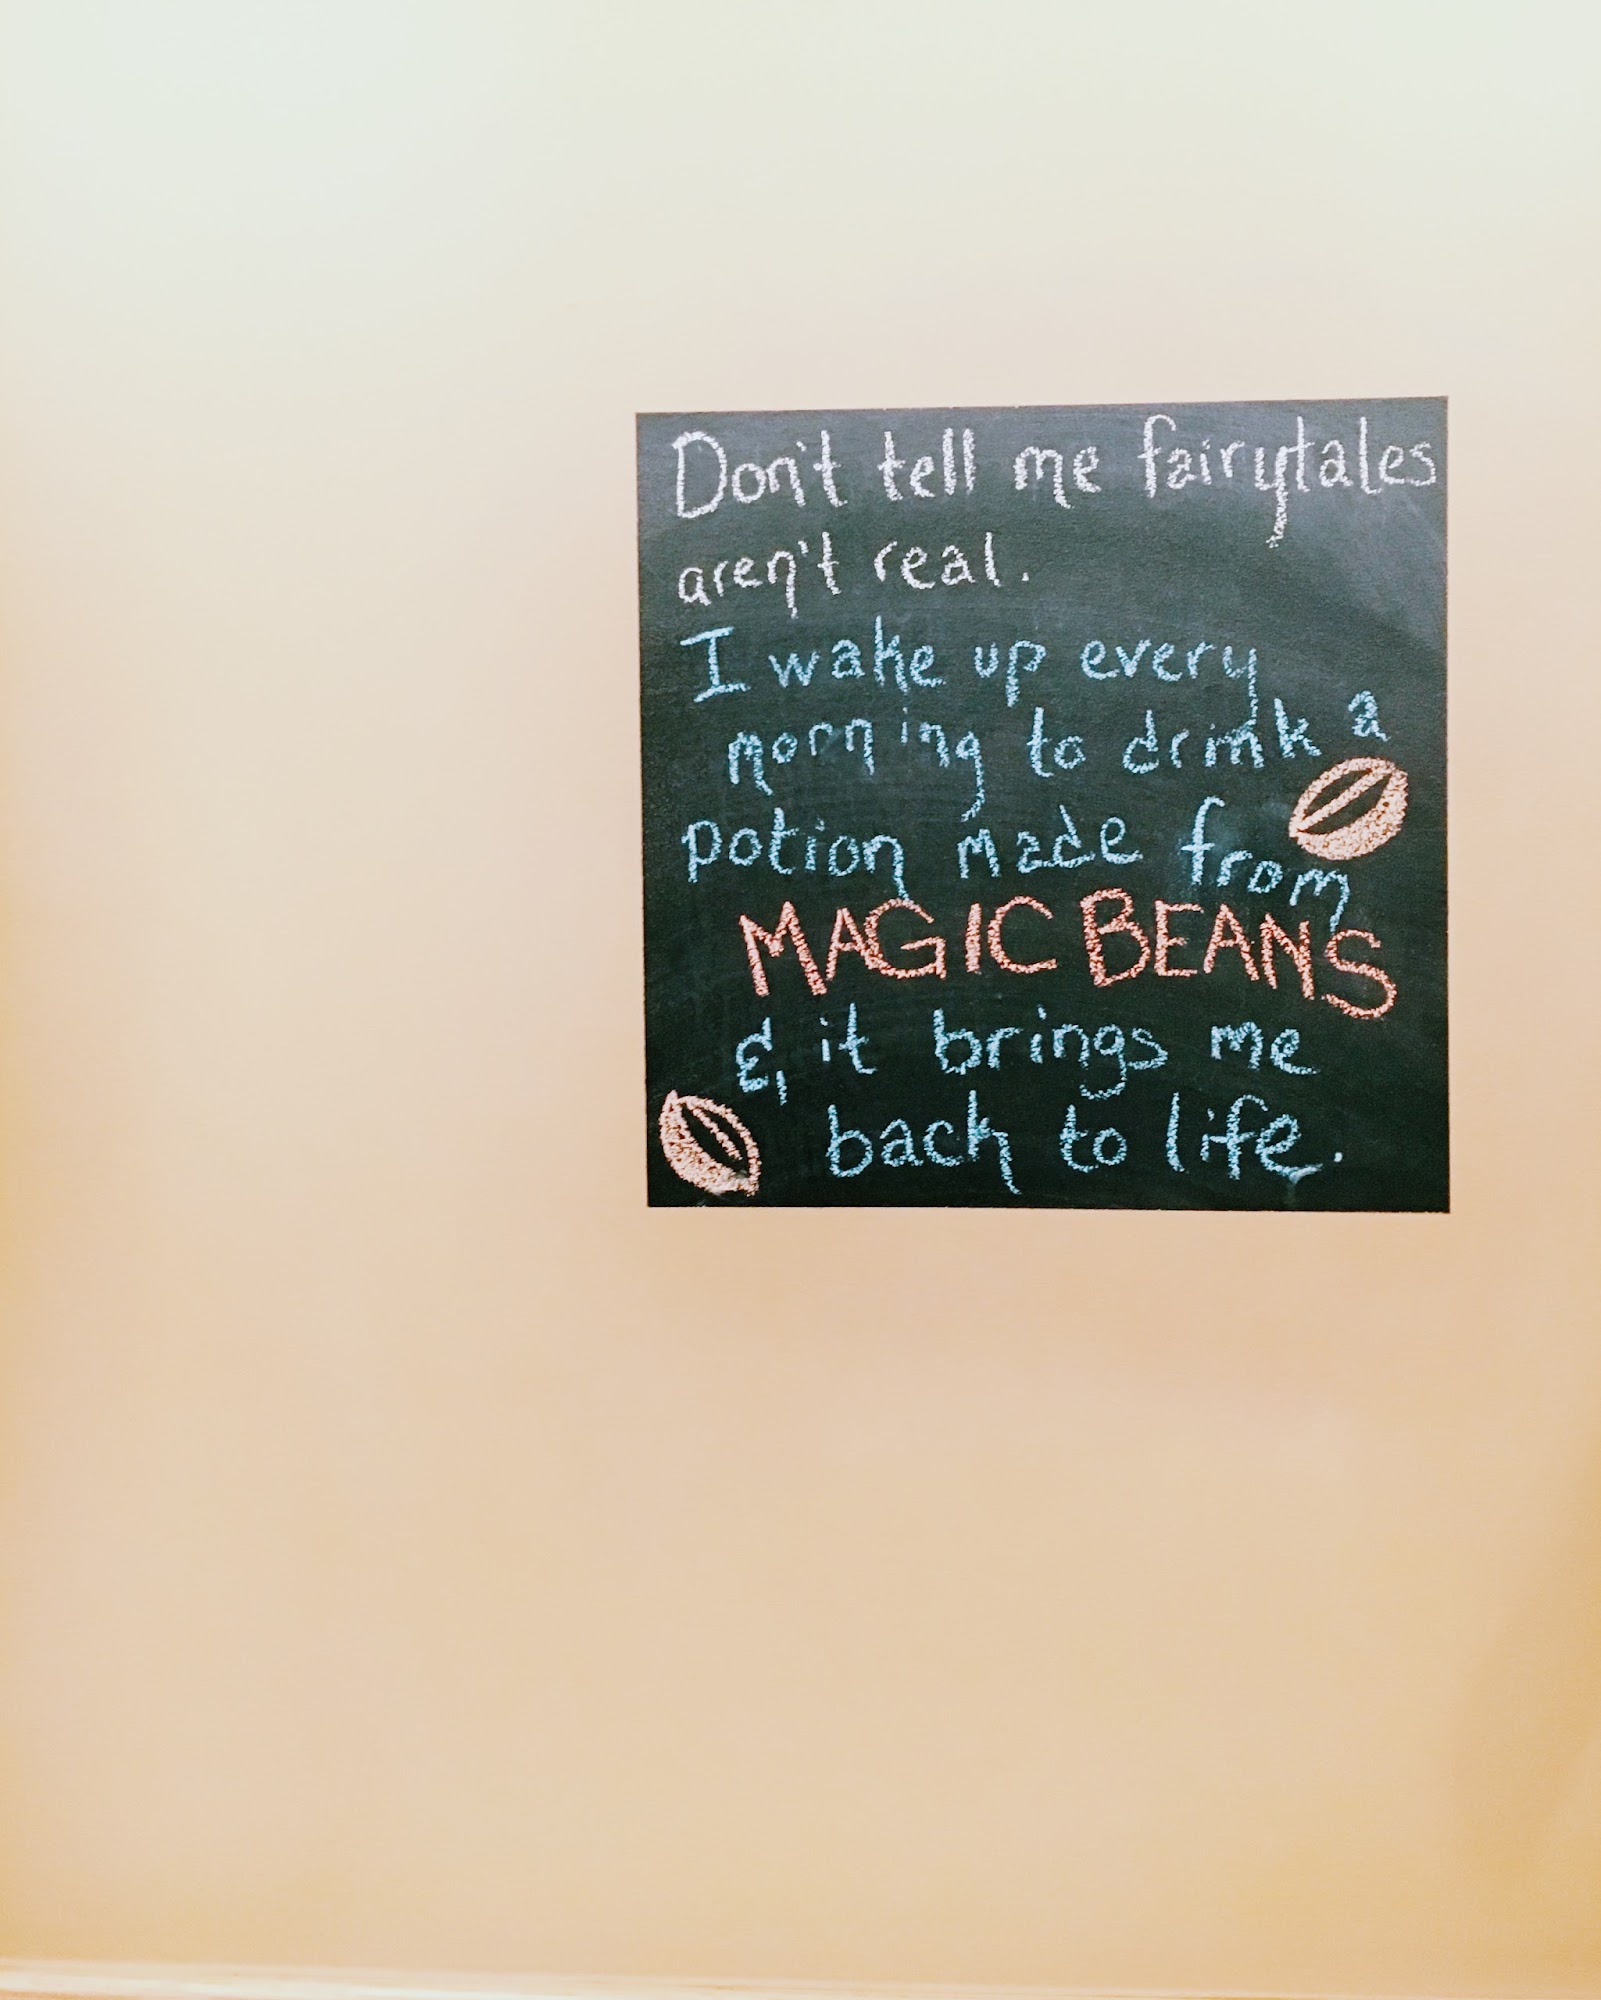 Don't tell me fairytales
aren't real.
I wake up every
morning to drink a
potion made from
MAGIC BEANS
& it brings me
back to life.